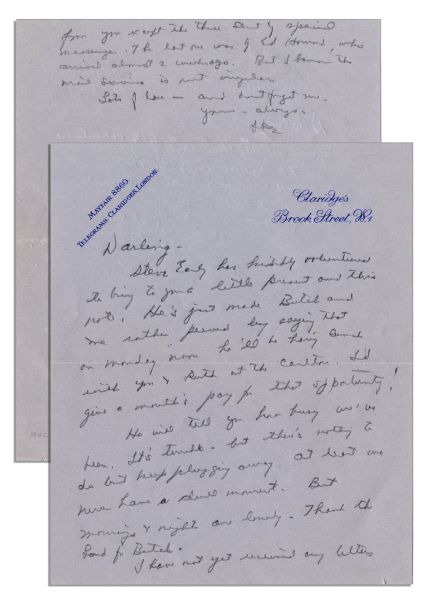 MAYFAIR 8860.
TELEGRAMS, CLARIDGES, LONDON.
Claridge's
Brook Street, W.1
Darling -
Steve Early has kindly volunteered
to bring to you a little present and this
note. He's just made Butch and
me rather peeved by saying that
on Monday noon he'll be having lunch
with you & Ruth at the Carlton. I'd
give a month's pay for that opportunity!
He will tell you how busy we've
been. It's terrible - but there's nothing to
do but keep plugging away. At least we
never have a dull moment. But
mornings & nights are lonely. Thank the
Lord for Butch.
I have not yet received any letters
from you except the three sent by special
messenger. The last one was by Ed Howard, who
arrived almost 2 weeks ago. But I know the
mail service is not regular.
Lots of love - and don't forget me.
Yours - always.